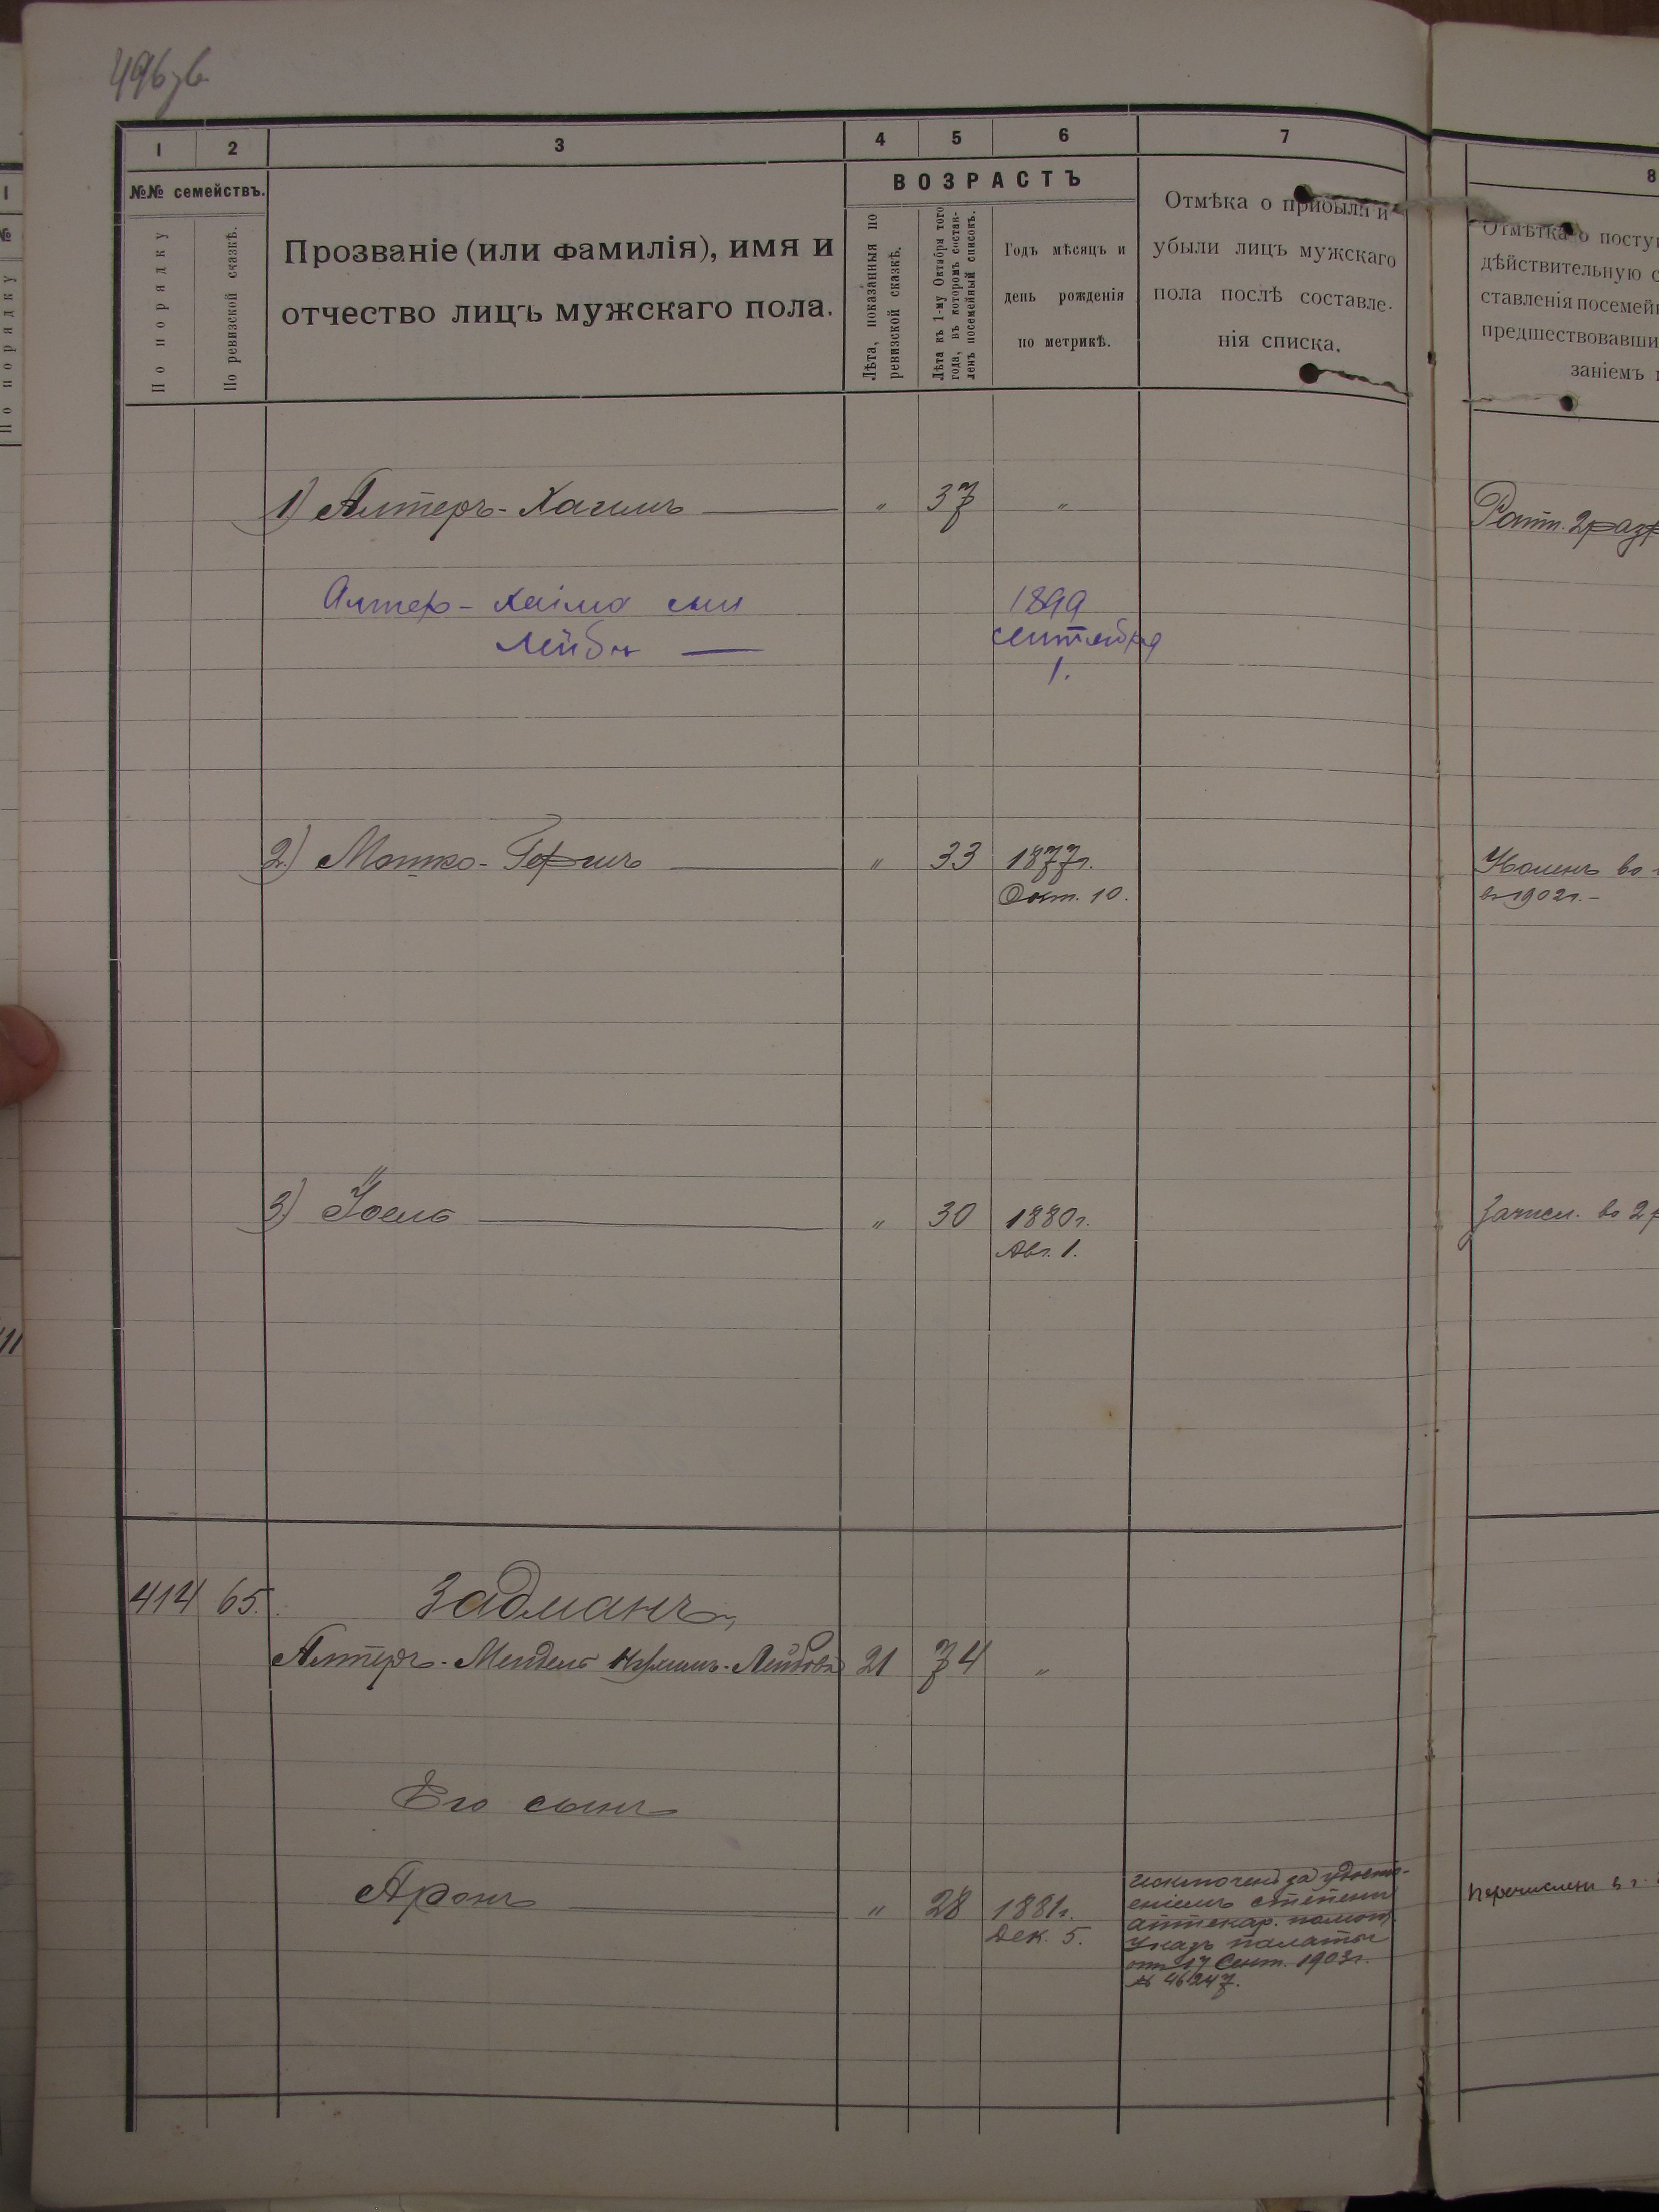 496зв.
1 2 3 4 5 6 7 8
№№ семействъ.
По порядку
По ревизской сказкѣ.
Прозваніе (или фамилія), имя и
отчество лицъ мужскаго пола.
ВОЗРАСТЪ
Лѣта, показанныя по
ревизской сказкѣ.
Лѣта къ 1-му Октября того
года, въ которомъ состав-
ленъ посемейный списокъ.
Годъ мѣсяцъ и
день рожденія
по метрикѣ.
Отмѣка о прибыли и
убыли лицъ мужскаго
пола послѣ составле-
нія списка.
Отмѣтка о посту
дѣйствительную с
ставленія посемей
предшествовавши
заніемъ
1) Алтеръ-Хаимъ — „ 37 „
Ратн. 2 разр
Алтер-Хаима сын 1899
Лейба — сентября
1.
2) Мотко-Гершъ — „ 33 1877г.
Окт. 10.
во
въ 1902г.-
3) Іоель — „ 30 1880г.
Авг. 1.
Зачисл. во 2 р
414 65. Задманъ,
Алтеръ-Мендель Лейбовъ 21 74 „
Его сынъ
Аронъ — „ 28 1881г.
Дек. 5.
Исключенъ за удосто-
еніемъ степени
аптекар. помощ.
Указъ палаты
отъ 17 Сент. 1903г.
№ 46247.
Перечислен в г.